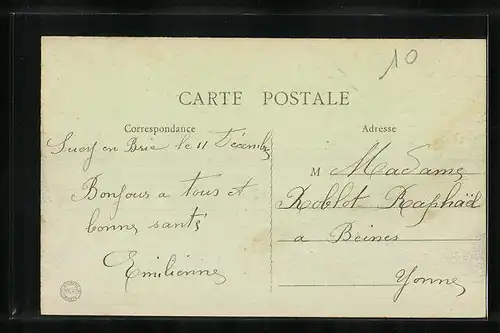 10
CARTE POSTALE
Correspondance
Adresse
Sucy en Brie le 11 Décembre
Bonjour a tous et
bonne santé
Emilienne
M Madame
Roblot Raphaël
a Beines
Yonne